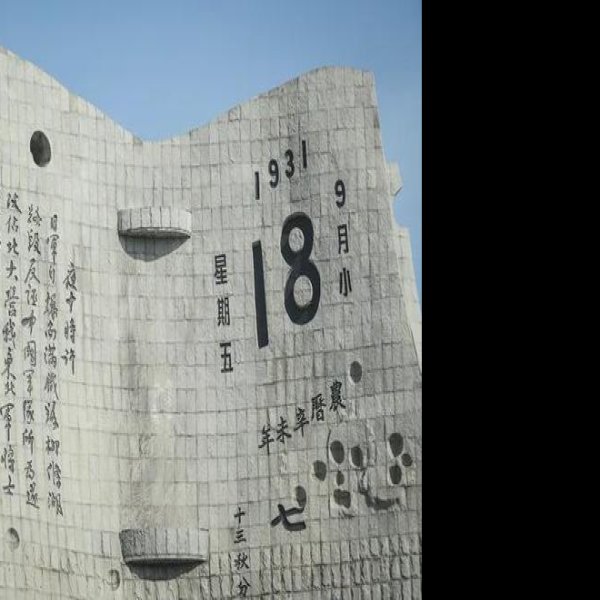 1931
9月小
18
星期五
農曆辛未年
七
十三秋分
夜十時许
日軍自爆南满鐵路柳條湖
路段反诬中國軍隊所為遂
攻佔北大營我東北軍将士